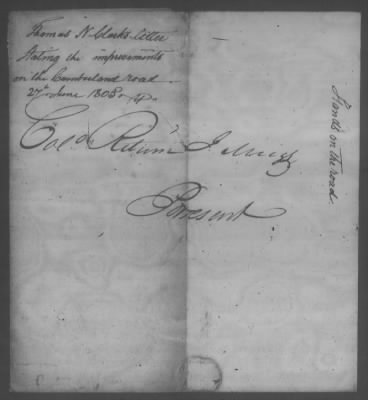 Thomas N Clarks letter
Stating the improvements
on the Cumberland road
27th June 1808
Colo Return J Meigs
Present
Stands on the road